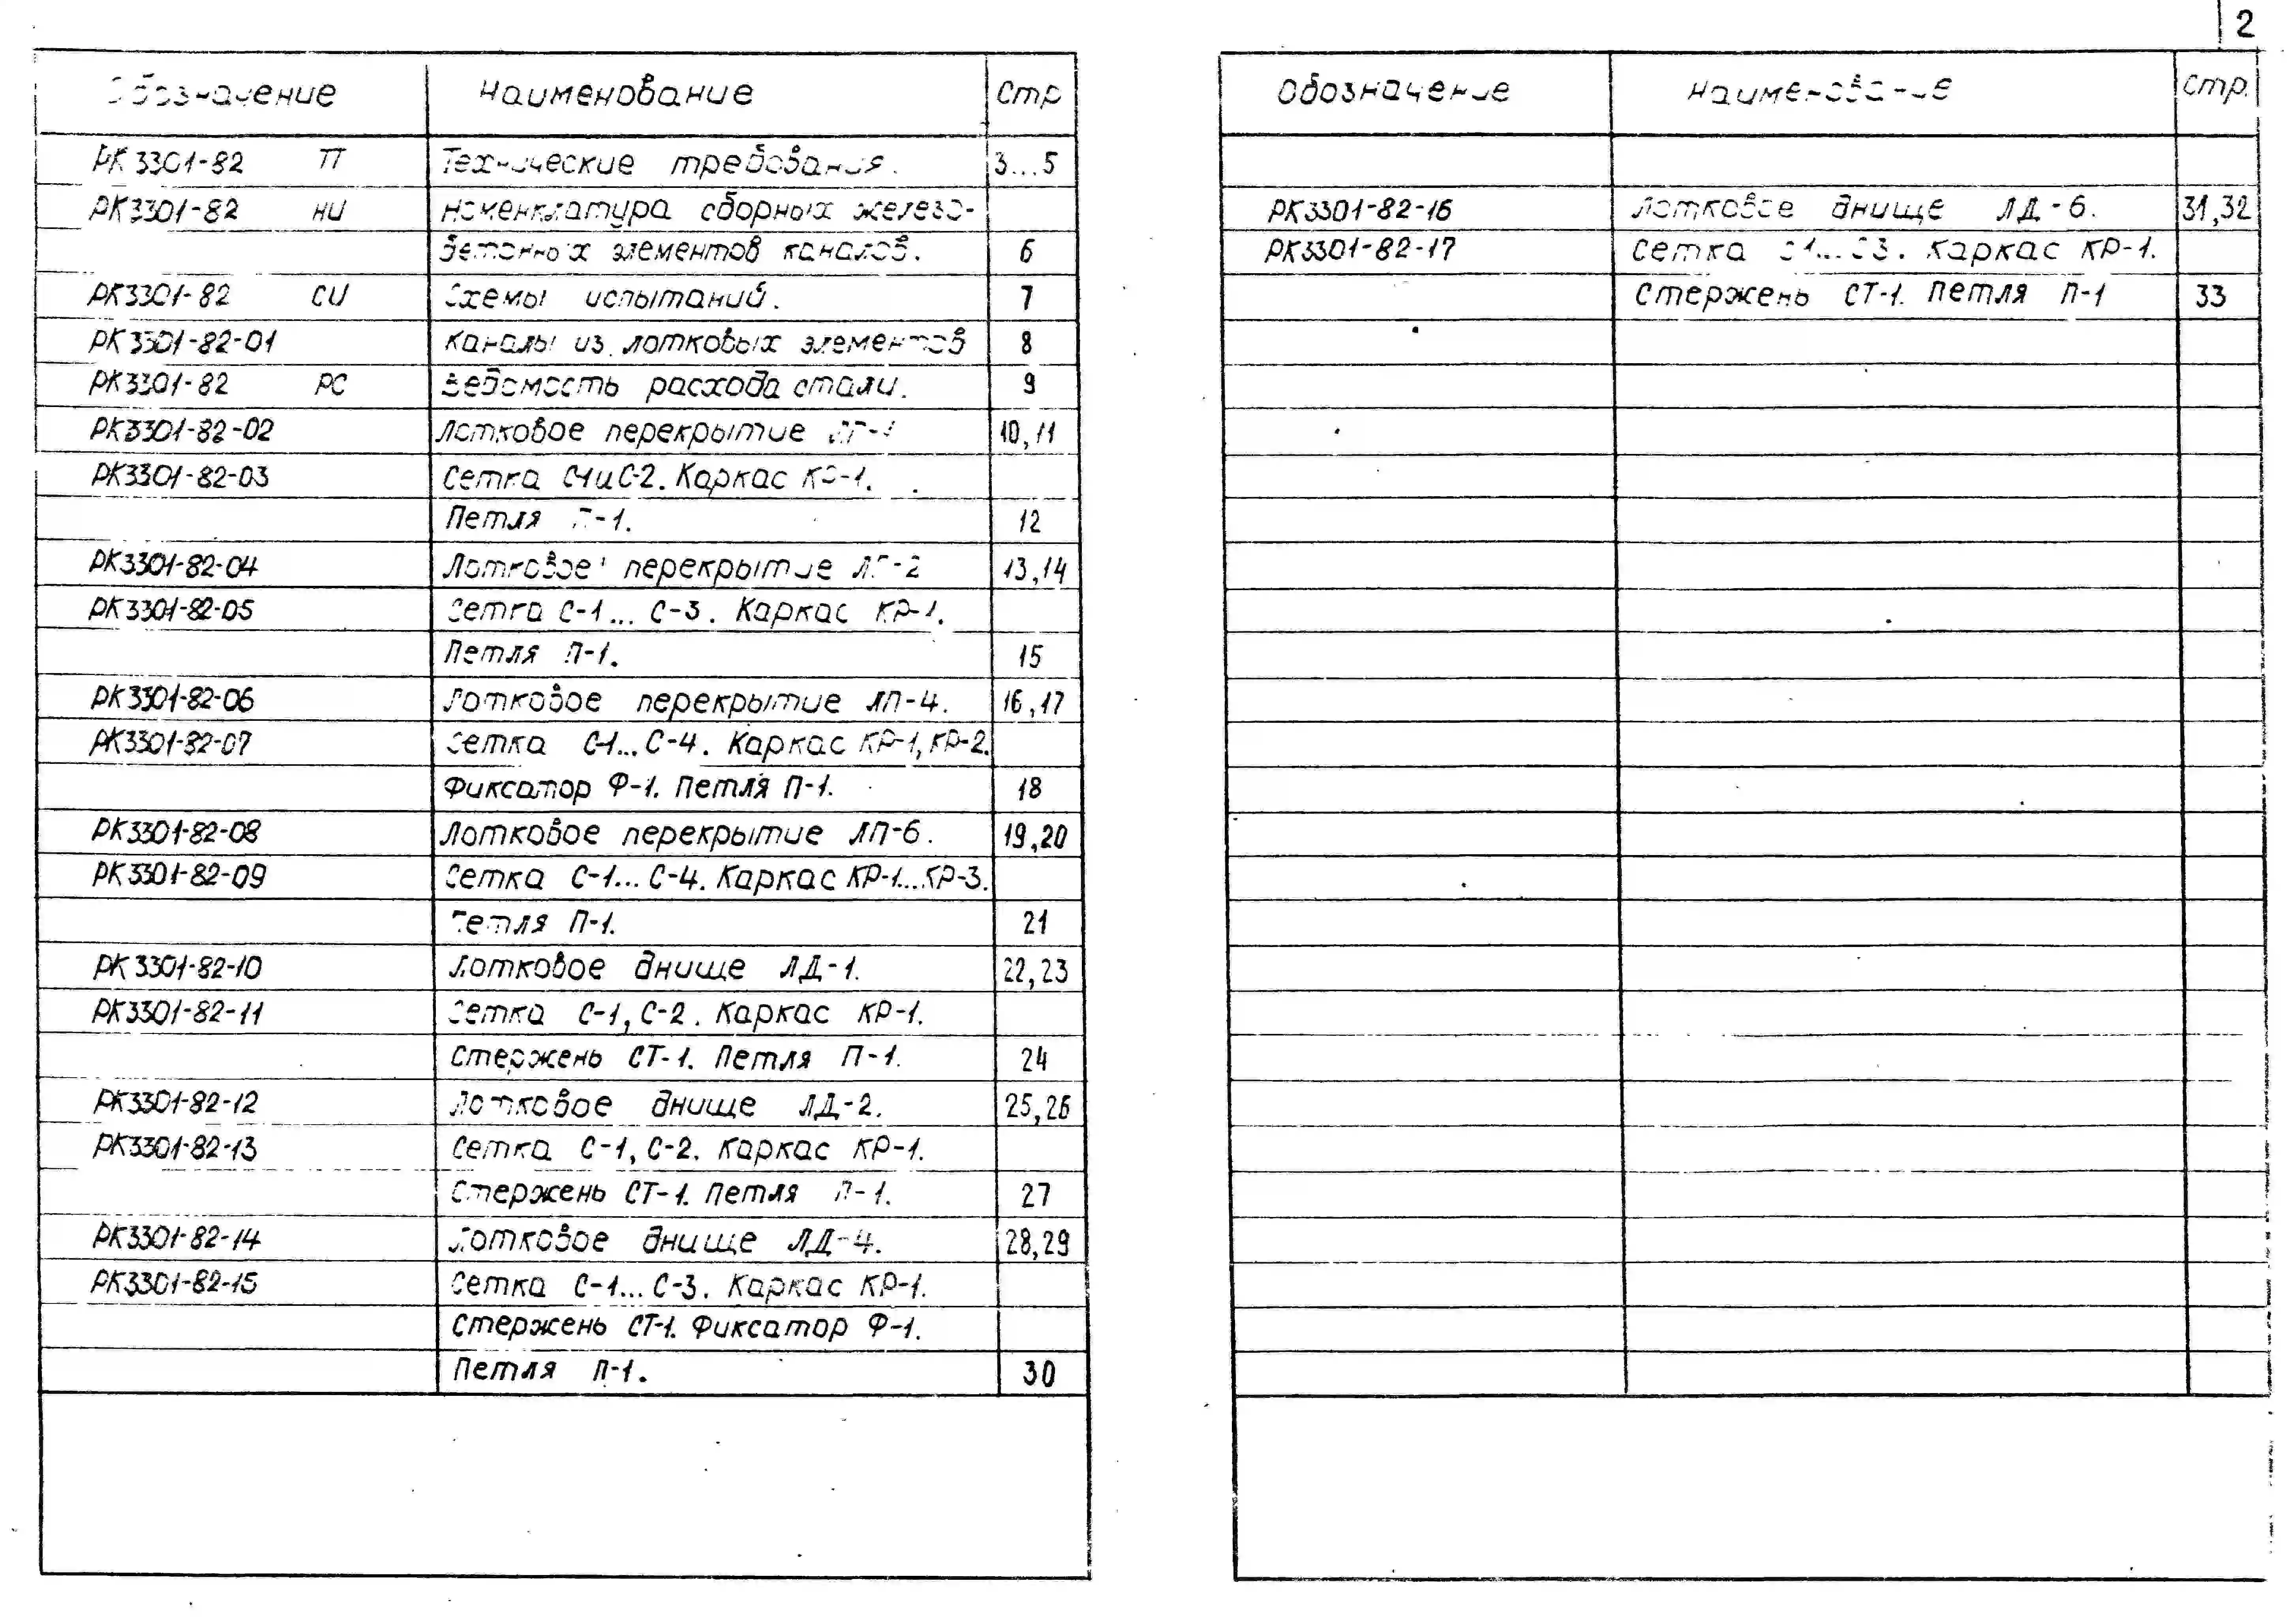 2
Обозначение Наименование Стр
РК 3301-82 ТТ Технические требования. 3...5
РК3301-82 НИ Номенклатура сборных железо-
бетонных элементов каналов. 6
РК3301-82 СИ Схемы испытаний. 7
РК3301-82-01 Каналы из лотковых элементов 8
РК3301-82 РС Ведомость расхода стали. 9
РК3301-82-02 Лотковое перекрытие 10,11
РК3301-82-03 Сетка С-1 и С-2. Каркас КР-1.
Петля П-1. 12
РК3301-82-04 Лотковое перекрытие ЛП-2 13,14
РК3301-82-05 Сетка С-1... С-3. Каркас КР-1.
Петля П-1. 15
РК3301-82-06 Лотковое перекрытие ЛП-4. 16,17
РК3301-82-07 Сетка С-1... С-4. Каркас КР-1, КР-2.
Фиксатор Ф-1. Петля П-1. 18
РК3301-82-08 Лотковое перекрытие ЛП-6. 19,20
РК3301-82-09 Сетка С-1... С-4. Каркас КР-1...КР-3.
Петля П-1. 21
РК3301-82-10 Лотковое днище ЛД-1. 22,23
РК3301-82-11 Сетка С-1, С-2. Каркас КР-1.
Стержень СТ-1. Петля П-1. 24
РК3301-82-12 Лотковое днище ЛД-2. 25,26
РК3301-82-13 Сетка С-1, С-2. Каркас КР-1.
Стержень СТ-1. Петля П-1. 27
РК3301-82-14 Лотковое днище ЛД-4. 28,29
РК3301-82-15 Сетка С-1... С-3. Каркас КР-1.
Стержень СТ-1. Фиксатор Ф-1.
Петля П-1. 30
Обозначение Наименование Стр.
РК3301-82-16 Лотковое днище ЛД-6. 31,32
РК3301-82-17 Сетка С1... С3. Каркас КР-1.
Стержень СТ-1. Петля П-1 33